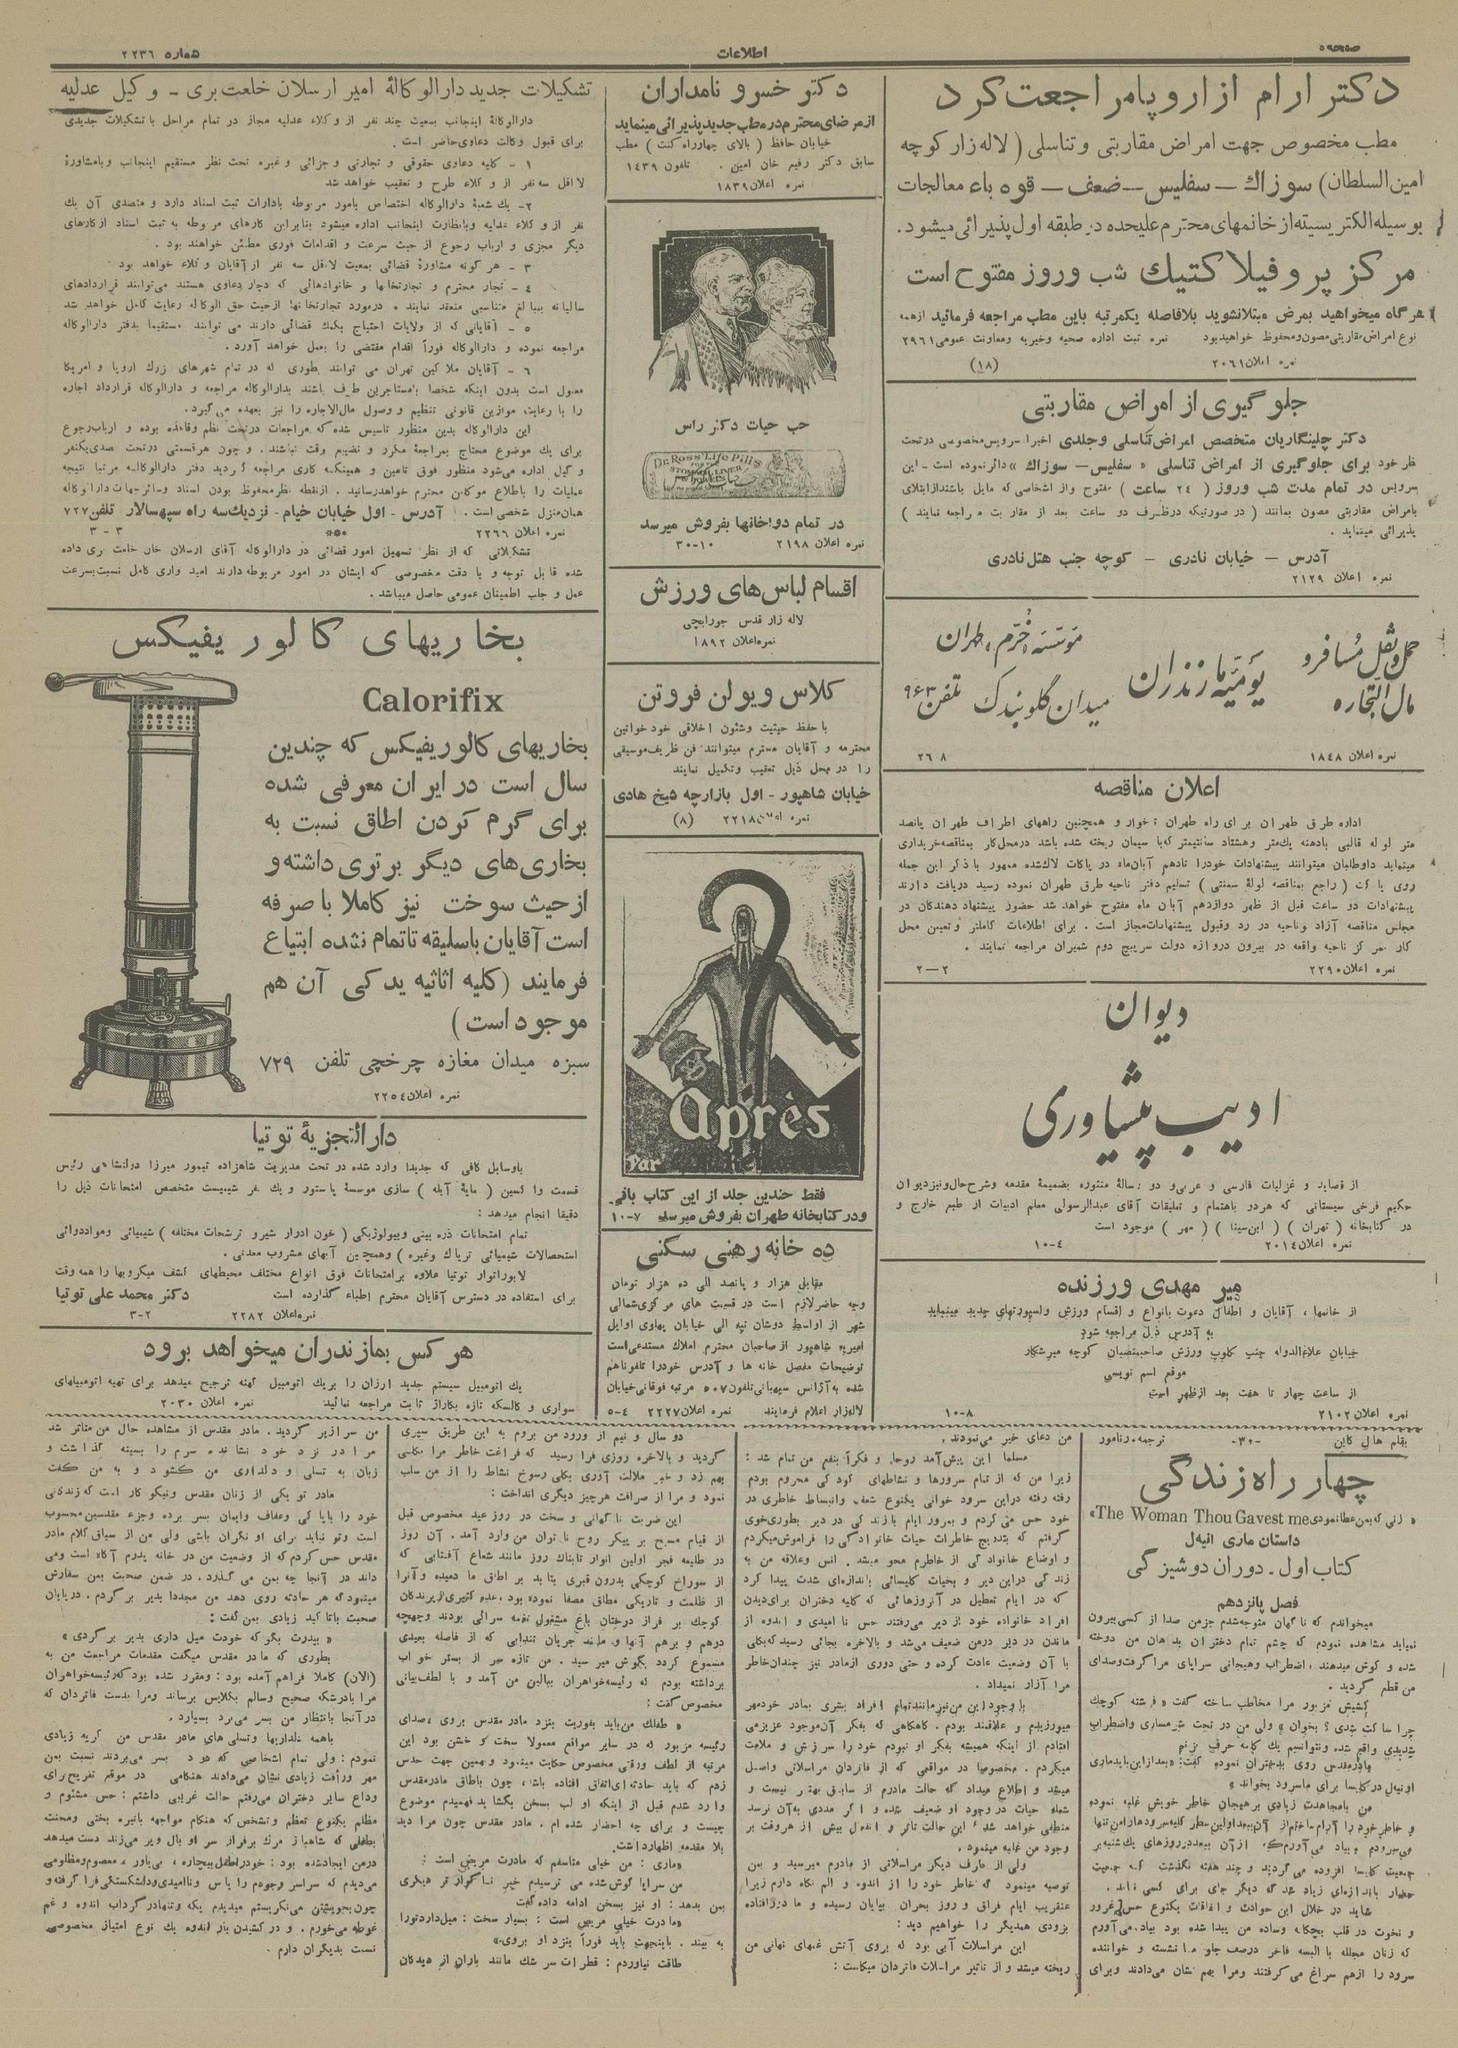 صفحه ۵
اطلاعات
شماره ۲۲۳۶
دکتر ارام از اروپا مراجعت کرد
مطب مخصوص جهت امراض مقاربتی و تناسلی ( لاله زار کوچه
امین السلطان) سوزاك — سفلیس — ضعف — قوه باء معالجات
بوسیله الکتریسیته از خانمهای محترم علیحده در طبقه اول پذیرائی میشود.
مرکز پروفیلاکتیك شب وروز مفتوح است
هرگاه میخواهید بمرض مبتلا نشوید بلافاصله یکمرتبه باین مطب مراجعه فرمائید ازهمه
نوع امراض مقاربتی مصون ومحفوظ خواهید بود نمره ثبت اداره صحیه وخیریه ومعاونت عمومی ۲۹۶۱
نمره اعلان ۲۰۶۱ (۱۸)
جلوگیری از امراض مقاربتی
دکتر چلینگاریان متخصص امراض تناسلی وجلدی اخیرا سرویس مخصوصی درتحت
نظر خود برای جلوگیری از امراض تناسلی « سفلیس — سوزاك » دائر نموده است - این
سرویس در تمام مدت شب وروز ( ۲۴ ساعت ) مفتوح واز اشخاصی که مایل باشند از ابتلای
بامراض مقاربتی مصون بمانند ( در صورتیکه درظرف دو ساعت بعد از مقاربت مراجعه نمایند )
پذیرائی مینماید .
آدرس — خیابان نادری — کوچه جنب هتل نادری
نمره اعلان ۲۱۲۹
حمل و نقل مسافر و
مال التجاره
یومیه مازندران
مؤسسه خرم ، طهران
میدان گلوبندک تلفن ۹۶۳
نمره اعلان ۱۸۴۸ ۲۶۸
اعلان مناقصه
اداره طرق طهران برای راه طهران : خوار و همچنین راههای اطراف طهران پانصد
متر لوله قالبی بادهنه یك متر وهشتاد سانتیمتر که با سیمان ریخته شده باشد درمحل کار بمناقصه خریداری
مینماید داوطلبان میتوانند پیشنهادات خودرا تادهم آبان ماه در پاکات لاك شده ممهور با ذکر این جمله
روی پاکت ( راجع بمناقصه لوله سمنتی ) تسلیم دفتر ناحیه طرق طهران نموده رسید دریافت دارند
پیشنهادات دو ساعت قبل از ظهر دوازدهم آبان ماه مفتوح خواهد شد حضور پیشنهاد دهندگان در
مجلس مناقصه آزاد وناحیه در رد وقبول پیشنهادات مجاز است . برای اطلاعات کاملتر وتعیین محل
کار بمرکز ناحیه واقعه در بیرون دروازه دولت سرپیچ دوم شمیران مراجعه نمایند .
نمره اعلان ۲۲۹۰ ۲—۲
دیوان
ادیب پیشاوری
از قصاید و غزلیات فارسی و عربی و دو رسالهٔ منثوره بضمیمهٔ مقدمه وشرح حال ونیز دیوان
حکیم فرخی سیستانی که هردو باهتمام و تعلیقات آقای عبدالرسولی معلم ادبیات از طبع خارج و
در کتابخانه ( تهران ) ( ابن سینا ) ( مهر ) موجود است
نمره اعلان ۲۰۱۴ ۱۰-۴
میر مهدی ورزنده
از خانمها ، آقایان و اطفال دعوت بانواع و اقسام ورزش واسپورتهای جدید مینماید
به آدرس ذیل مراجعه شود
خیابان علاءالدوله جنب کلوپ ورزش صاحبمنصبان کوچه میرشکار
موقع اسم نویسی
از ساعت چهار تا هفت بعد ازظهر است
نمره اعلان ۲۱۰۲ ۱۰-۸
دکتر خسرو نامداران
از مرضای محترم در مطب جدید پذیرائی مینماید
خیابان حافظ ( بالای چهارراه کنت ) مطب
سابق دکتر رفیع خان امین . تلفون ۱۴۳۹
نمره اعلان ۱۸۳۹
حب حیات دکتر راس
Dr. Ross' Life Pills
در تمام دواخانها بفروش میرسد
نمره اعلان ۲۱۹۸ ۳۰-۱۰
اقسام لباس های ورزش
لاله زار قدس جورابچی
نمره اعلان ۱۸۹۲
کلاس ویولن فروتن
با حفظ حیثیت وشئون اخلاقی خود خواتین
محترمه و آقایان محترم میتوانند فن ظریف موسیقی
را در محل ذیل تعقیب وتکمیل نمایند
خیابان شاهپور - اول بازارچه شیخ هادی
نمره اعلان ۲۲۱۸ (۸)
Après
Par
فقط چندین جلد از این کتاب باقی
ودرکتابخانه طهران بفروش میرسد ۱۰-۷
ده خانه رهنی سکنی
مقابل هزار و پانصد الی ده هزار تومان
وجه حاضر لازم است در قسمت های مرکزی شمالی
شهر از اواسط دوشان تپه الی خیابان پهلوی اوایل
امیریه شاهپور از صاحبان محترم املاك مستدعی است
توضیحات مفصل خانه ها و آدرس خودرا تلفونا هم
شده به آژانس سپهبانی تلفون ۵۰۷ مرتبه فوقانی خیابان
لاله زار اعلام فرمایند نمره اعلان ۲۲۲۷ ۵-۴
تشکیلات جدید دارالوکالهٔ امیر ارسلان خلعت بری - وکیل عدلیه
دارالوکالهٔ اینجانب بمعیت چند نفر از وکلاء عدلیه مجاز در تمام مراحل با تشکیلات جدیدی
برای قبول وکالت دعاوی حاضر است .
۱ - کلیه دعاوی حقوقی و تجارتی و جزائی و غیره تحت نظر مستقیم اینجانب وبامشاورهٔ
لااقل سه نفر از وکلاء طرح و تعقیب خواهد شد
۲- یك شعبهٔ دارالوکاله اختصاص بامور مربوطه بادارات ثبت اسناد دارد و متصدی آن یك
نفر از وکلاء عدلیه وبانظارت اینجانب اداره میشود بنابراین کارهای مربوطه به ثبت اسناد ازکارهای
دیگر مجزی و ارباب رجوع از حیث سرعت و اقدامات فوری مطمئن خواهند بود .
۳ - هرگونه مشاورهٔ قضائی بمعیت لااقل سه نفر از آقایان وکلاء خواهد بود
۴ - تجار محترم و تجارتخانها و خانوادهائی که دچار دعاوی هستند می توانند قراردادهای
سالیانه بمبالغ متناسبی منعقد نمایند . درمورد تجارتخانها ازحیث حق الوکاله رعایت کامل خواهد شد
۵ - آقایانی که از ولایات احتیاج بکمك قضائی دارند می توانند مستقیما بدفتر دارالوکاله
مراجعه نموده و دارالوکاله فوراً اقدام مقتضی را بعمل خواهد آورد .
۶ - آقایان ملاکین تهران می توانند بطوری که در تمام شهرهای بزرك اروپا و امریکا
معمول است بدون اینکه شخصاً بامستاجرین طرف باشند بدارالوکاله مراجعه و دارالوکاله قرارداد اجاره
را با رعایت موازین قانونی تنظیم و وصول مال الاجاره را نیز بعهده می گیرد .
این دارالوکاله بدین منظور تاسیس شده که مراجعات درتحت نظم وقاعده بوده و ارباب رجوع
برای یك موضوع محتاج بمراجعهٔ مکرر و تضییع وقت نباشند . و چون هرقسمتی درتحت تصدی یکنفر
وکیل اداره می شود منظور فوق تامین و همینکه کاری مراجعه گردید دفتر دارالوکاله مرتبا نتیجه
عملیات را باطلاع موکلین محترم خواهد رسانید . ازنقطه نظر محفوظ بودن اسناد وسایر جهات دارالوکاله
همان منزل شخصی است . آدرس - اول خیابان خیام - نزدیك سه راه سپهسالار تلفن ۷۲۷
نمره اعلان ۲۲۶۶ ۳ - ۳
تشکیلاتی که از نظر تسهیل امور قضائی در دارالوکاله آقای ارسلان خان خلعت بری داده
شده قابل توجه و با دقت مخصوصی که ایشان در امور مربوطه دارند امید واری کامل نسبت بسرعت
عمل و جلب اطمینان عمومی حاصل میباشد .
بخاریهای کالوریفیکس
Calorifix
بخاریهای کالوریفیکس که چندین
سال است در ایران معرفی شده
برای گرم کردن اطاق نسبت به
بخاری های دیگر برتری داشته و
از حیث سوخت نیز کاملا با صرفه
است آقایان باسلیقه تاتمام نشده ابتیاع
فرمایند (کلیه اثاثیه یدکی آن هم
موجود است )
سبزه میدان مغازه چرخچی تلفن ۷۲۹
نمره اعلان ۲۲۵۴
دارالتجزیهٔ توتیا
باوسایل کافی که جدیدا وارد شده در تحت مدیریت شاهزاده تیمور میرزا دولتشاهی رئیس
قسمت واکسین ( مایهٔ آبله ) سازی موسسهٔ پاستور و یك نفر شیمیست متخصص امتحانات ذیل را
دقیقا انجام میدهد :
تمام امتحانات ذره بینی وبیولوژیکی ( خون ادرار شیر و ترشحات مختلفه ) شیمیائی ومواد دوائی
استحصالات شیمیائی تریاك وغیره ) وهمچنین آبهای مشروب معدنی .
لابوراتوار توتیا علاوه برامتحانات فوق انواع مختلف محیطهای کشف میکروبها را همه وقت
برای استفاده در دسترس آقایان محترم اطباء گذارده است دکتر محمد علی توتیا
نمره اعلان ۲۲۸۲ ۳-۲
هرکس بمازندران میخواهد برود
یك اتومبیل سیستم جدید ارزان را بریك اتومبیل کهنه ترجیح میدهد برای تهیه اتومبیلهای
سواری و کالسکه تازه بگاراژ ثابت مراجعه نمائید نمره اعلان ۲۰۳۰
بقلم هال کاین -۳۰- ترجمه رنامور
چهار راه زندگی
« زنی که بمن عطا نمودی The Woman Thou Gavest me»
داستان ماری اونیل
کتاب اول - دوران دوشیزگی
فصل پانزدهم
میخواندم که ناگهان متوجه شدم جزمن صدا از کسی بیرون
نمیاید مشاهده نمودم که چشم تمام دختران بدهان من دوخته
شده و گوش میدهند ، اضطراب وهیجانی سراپای مرا گرفت وصدای
من قطع گردید .
کشیش مزبور مرا مخاطب ساخته گفت « فرشته کوچك
چرا ساکت شدی ؟ بخوان » ولی من در تحت شرمساری واضطراب
شدیدی واقع شده ونتوانستم یك کلمه حرف بزنم
مادرمقدس روی بدختران نموده گفت: «بعد از این باید ماری
اونیل درکلیسا برای ما سرود بخواند »
من بامجاهدت زیادی برهیجان خاطر خویش غلبه نموده
جمعیت کلیسا افزوده می گردید و چند هفته نگذشت که جمعیت
حضار باندازه ای زیاد شد که دیگر جای برای کسی نماند .
شاید در خلال این حوادث و اتفاقات یکنوع حس غرور
و نخوت در قلب بچگانه وساده من پیدا شده بود بیاد می آورم
که زنان مجلله با البسه فاخر درصف جلو ما نشسته و خواننده
سرود را ازهم سراغ می گرفتند ومرا بهم نشان می دادند وبرای
من دعای خیر می نمودند .
مسلما این پیش آمد روحا و فکراً بنفع من تمام شد :
زیرا من که از تمام سرورها و نشاطهای کودکی محروم بودم
رفته رفته دراین سرود خوانی یکنوع شعف وانبساط خاطری در
خود حس می کردم و بمرور ایام بازندگی در دیر بطوری خوی
گرفتم که بتدریج خاطرات حیات خانوادگی را فراموش میکردم
و اوضاع خانوادگی از خاطرم محو میشد . انس وعلاقه من به
زندگی دراین دیر و بحیات کلیسائی باندازه ای شدت پیدا کرد
که در ایام تعطیل در آنروزهائی که کلیه دختران برای دیدن
افراد خانواده خود از دیر میرفتند حس ناامیدی و اندوه از
ماندن در دیر درمن ضعیف می شد و بالاخره بجائی رسید که بکلی
با آن وضعیت عادت کرده و حتی دوری ازمادر نیز چندان خاطر
مرا آزار نمیداد .
با وجود این من نیز مانند تمام افراد بشری بمادر خود مهر
میورزیدم و علاقمند بودم . گاهگاهی که بفکر آن موجود عزیز می
افتادم از اینکه همیشه بفکر او نبودم خود را سرزنش و ملامت
میکردم . مخصوصا در مواقعی که از فاتردان مراسلاتی واصل
میشد و اطلاع میداد که حالت مادرم از سابق بهتر نیست و
شعله حیات در وجود او ضعیف شده و اگر مددی به آن نرسد
منطفی خواهد شد ، این حالت تاثر و انفعال بیش از هروقت بر
وجود من غلبه مینمود .
ولی از طرف دیگر مراسلاتی از مادرم میرسید و بمن
توصیه مینمود که خاطر خود را از اندوه و الم نگاه دارم زیرا
عنقریب ایام فراق و روز بحران بپایان رسیده و مادر افتاده
بزودی همدیگر را خواهیم دید :
این مراسلات آبی بود که بروی آتش غمهای نهانی من
ریخته میشد و از تاثیر مراسلات فاتردان میکاست :
دو سال و نیم از ورود من بروم به این طریق سپری
گردید و بالاخره روزی فرا رسید که فراغت خاطر مرا بکلی
بهم زد و خبر ملالت آوری بکلی رسوخ نشاط را از من سلب
نمود و مرا از صرافت هرچیز دیگری انداخت :
این ضربت ناگهانی و سخت در روز عید مخصوص قبل
از قیام مسیح بر پیکر روح ناتوان من وارد آمد . آن روز
در طلیعه فجر اولین انوار تابناك روز مانند شعاع آفتابی که
از سوراخ کوچکی بدرون قبری بتابد بر اطاق ما دمیده وآنرا
از ظلمت و تاریکی مطلق مصفا نموده بود . عده کثیری از پرندگان
کوچك بر فراز درختان باغ مشغول نغمه سرائی بودند وچهچه
درهم و برهم آنها مانند جریان تندابی که از فاصله بعیدی
مسموع گردد بگوش میرسید . من تازه سر از بستر خواب
برداشته بودم که رئیسه خواهران ببالین من آمد و با لطف بیانی
مخصوص گفت :
« طفلك من باید بفوریت بنزد مادر مقدس بروی ، صدای
رئیسه مزبور که در سایر مواقع معمولا سخت و خشن بود این
مرتبه از لطف ورقتی مخصوص حکایت مینمود وبهمین جهت حدس
زدم که باید حادثه ای اتفاق افتاده باشد ، چون باطاق مادرمقدس
وارد شدم قبل از اینکه او لب بسخن بگشاید فهمیدم موضوع
چیست و برای چه احضار شده ام . مادر مقدس چون مرا دید
بلا مقدمه اظهار داشت :
«ماری : من خیلی متاسفم که مادرت مریض است :
من سراپا گوش شده می ترسیدم خبر ناگوارتر دیگری
بمن بدهد : او نیز بسخن ادامه داده گفت
«مادرت خیلی مریض است : بسیار سخت : میل دارد تورا
به بیند . باینجهت باید فوراً بنزد او بروی.»
طاقت نیاوردم : قطرات سرشك مانند باران از دیدگان
من سرازیر گردید . مادر مقدس از مشاهده حال من متاثر شد
مرا در نزد خود نشانده سرم را بسینه گذاشت و
زبان به تسلی و دلداری من گشود و به من گفت
مادر تو یکی از زنان مقدس ونیکوکار است که زندگانی
خود را بپاکی وعفاف وایمان بسر برده وجزء مقدسین محسوب
است وتو نباید برای او نگران باشی ولی من از سیاق کلام مادر
مقدس حس کردم که از وضعیت من در خانه پدرم آگاه است ومی
داند در آنجا چه بمن می گذرد . در ضمن صحبت بمن سفارش
مینمود که هر حادثه روی دهد من مجددا بدیر برگردم . درپایان
صحبت باتاکید زیادی بمن گفت :
« بپدرت بگو که خودت میل داری بدیر برگردی »
بطوری که مادر مقدس میگفت مقدمات مراجعت من به
(الان) کاملا فراهم آمده بود : ومقرر شده بود که رئیسه خواهران
مرا بادرشکه صحیح وسالم بکلایس برساند ومرا بدست فاتردان که
در آنجا بانتظار من بسر می برد بسپارد .
باهمه دلداریها وتسلی های مادر مقدس من گریه زیادی
نمودم : ولی تمام اشخاصی که در دیر بسر می بردند نسبت بمن
مهر ورأفت زیادی نشان می دادند هنگامی در موقع تفریح برای
وداع سایر دختران می رفتم حالت غریبی داشتم : حس مشئوم و
مظلم یکنوع تعظم وتشخص که هنگام مواجهه بانیره بختی ومحنت
بطفلی که شاهباز مرك برفراز سر او بال وپر می زند دست میدهد
درمن ایجاد شده بود : خودرا طفل بیچاره ، بی یاور ، معصوم ومظلومی
می دیدم که سراسر وجودم را یاس وناامیدی ودلشکستگی فرا گرفته و
چون بخویشتن می نگریستم میدیدم یکه وتنها در گرداب اندوه و غم
غوطه می خورم . و در کشیدن بار اندوه یك نوع امتیاز مخصوصی
نسبت بدیگران دارم .